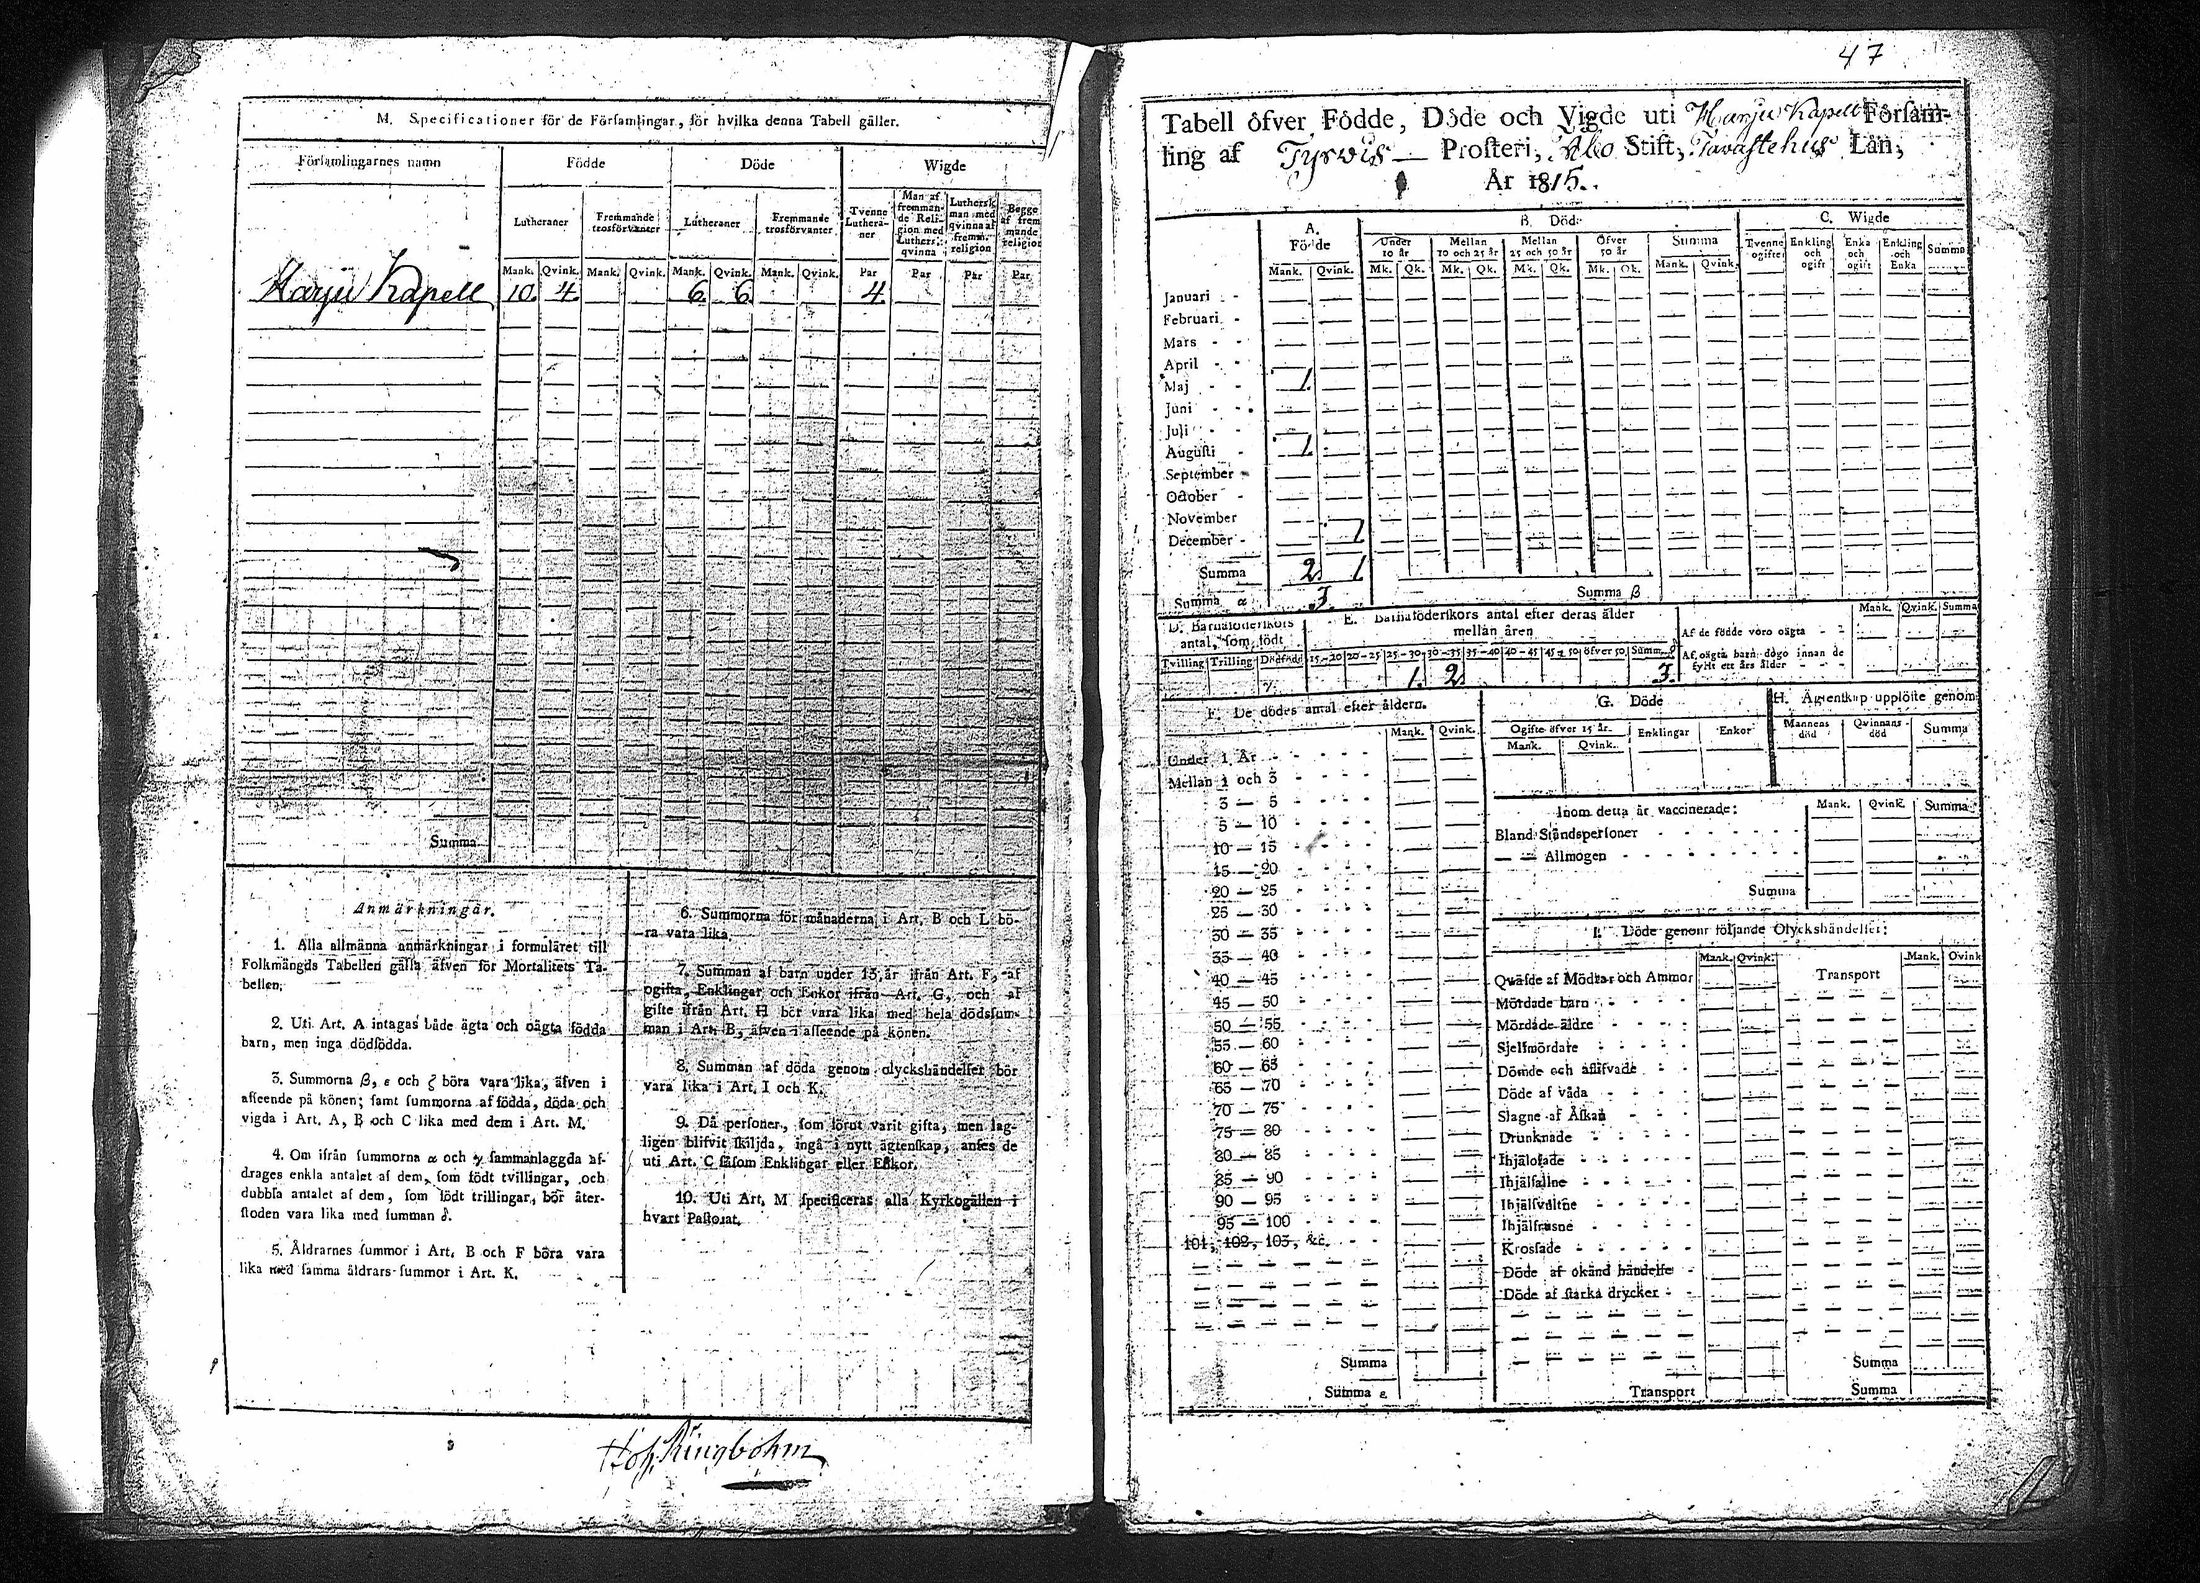 M. Specificationer för de Församlingar, för hvilka denna Tabell gäller.
Församlingarnes namn Födde Döde Wigde
Lutheraner Fremmande trosförvanter Lutheraner Fremmande trosförvanter Tvenne Lutheraner Man af fremmande Religion med Luthersk qvinna Luthersk man med qvinna af fremm. religion Begge af fremmande religion
Mank. Qvink. Mank. Qvink. Mank. Qvink. Mank. Qvink. Par Par Par Par
Harju Kapell 10. 4. 6. 6. 4.
Summa
Anmärkningar.
1. Alla allmänna anmärkningar i formuläret till
Folkmängds Tabellen gälla äfven för Mortalitets Ta-
bellen.
2. Uti Art. A intagas både ägta och oägta födda
barn, men inga dödfödda.
3. Summorna β, ε och ζ böra vara lika, äfven i
afseende på könen; samt summorna af födda, döda och
vigda i Art. A, B och C lika med dem i Art. M.
4. Om ifrån summorna α och γ sammanlaggda af-
drages enkla antalet af dem, som födt tvillingar, och
dubbla antalet af dem, som födt trillingar, bör åter-
stoden vara lika med summan δ.
5. Åldrarnes summor i Art. B och F böra vara
lika med samma åldrars summor i Art. K.
6. Summorna för månaderna i Art. B och L bö-
ra vara lika.
7. Summan af barn under 15 år ifrån Art. F, af
ogifta, Enklingar och Enkor ifrån Art. G, och af
gifte ifrån Art. H bör vara lika med hela dödssum-
man i Art. B, äfven i afseende på könen.
8. Summan af döda genom olyckshändelser bör
vara lika i Art. I och K.
9. Då personer, som förut varit gifta, men lag-
ligen blifvit skiljda, ingå i nytt ägtenskap, anses de
uti Art. C såsom Enklingar eller Enkor.
10. Uti Art. M specificeras alla Kyrkogällen i
hvart Pastorat.
Joh. Ringbohm
47
Tabell öfver Födde, Döde och Vigde uti Harju Kapell Försam-
ling af Tyrvis Prosteri, Åbo Stift, Tavastehus Län,
År 1815.
A. Födde B. Döde C. Wigde
Under 10 år Mellan 10 och 25 år Mellan 25 och 50 år Öfver 50 år Summa Tvenne ogifte Enkling och ogift Enka och ogift Enkling och Enka Summa
Mank. Qvink. Mk. Qk. Mk. Qk. Mk. Qk. Mk. Qk. Mank. Qvink.
Januari
Februari
Mars
April
Maj 1.
Juni
Juli
Augusti 1.
September
October
November
December 1
Summa 2. 1
Summa α 3. Summa β
D. Barnaföderskors antal, som födt
Tvilling Trilling Dödfödd
E. Barnaföderskors antal efter deras ålder
mellan åren
15-20 20-25 25-30 30-35 35-40 40-45 45-50 öfver 50 Summ. δ
1. 2. 3.
Mank. Qvink. Summa
Af de födde voro oägta
Af oägta barn dogo innan de
fyllt ett års ålder
F. De dödes antal efter åldern.
Mank. Qvink.
Under 1 År
Mellan 1 och 3
3 — 5
5 — 10
10 — 15
15 — 20
20 — 25
25 — 30
30 — 35
35 — 40
40 — 45
45 — 50
50 — 55
55 — 60
60 — 65
65 — 70
70 — 75
75 — 80
80 — 85
85 — 90
90 — 95
95 — 100
101, 102, 103, &c.
Summa
Summa ε
G. Döde
Ogifte öfver 15 år. Enklingar Enkor
Mank. Qvink.
H. Ägtenskap upplöste genom
Mannens död Qvinnans död Summa
Inom detta år vaccinerade: Mank. Qvink. Summa
Bland Ståndspersoner
— — Allmogen
Summa
I. Döde genom följande Olyckshändelser:
Mank. Qvink. Transport Mank. Qvink.
Qväfde af Mödrar och Ammor
Mördade barn
Mördade äldre
Sjelfmördare
Dömde och aflifvade
Döde af våda
Slagne af Åskan
Drunknade
Ihjälosade
Ihjälfallne
Ihjälsvultne
Ihjälfrusne
Krossade
Döde af okänd händelse
Döde af starka drycker
Summa
Transport Summa